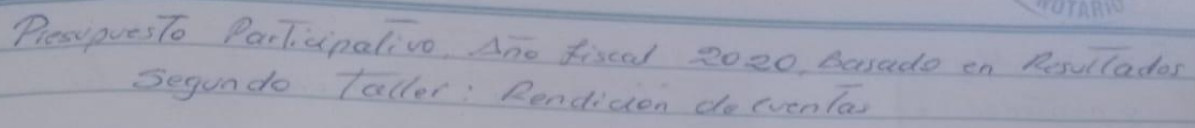 NOTARIO
Presupuesto Participativo Año fiscal 2020, basado en Resultados
Segundo Taller: Rendición de cuentas